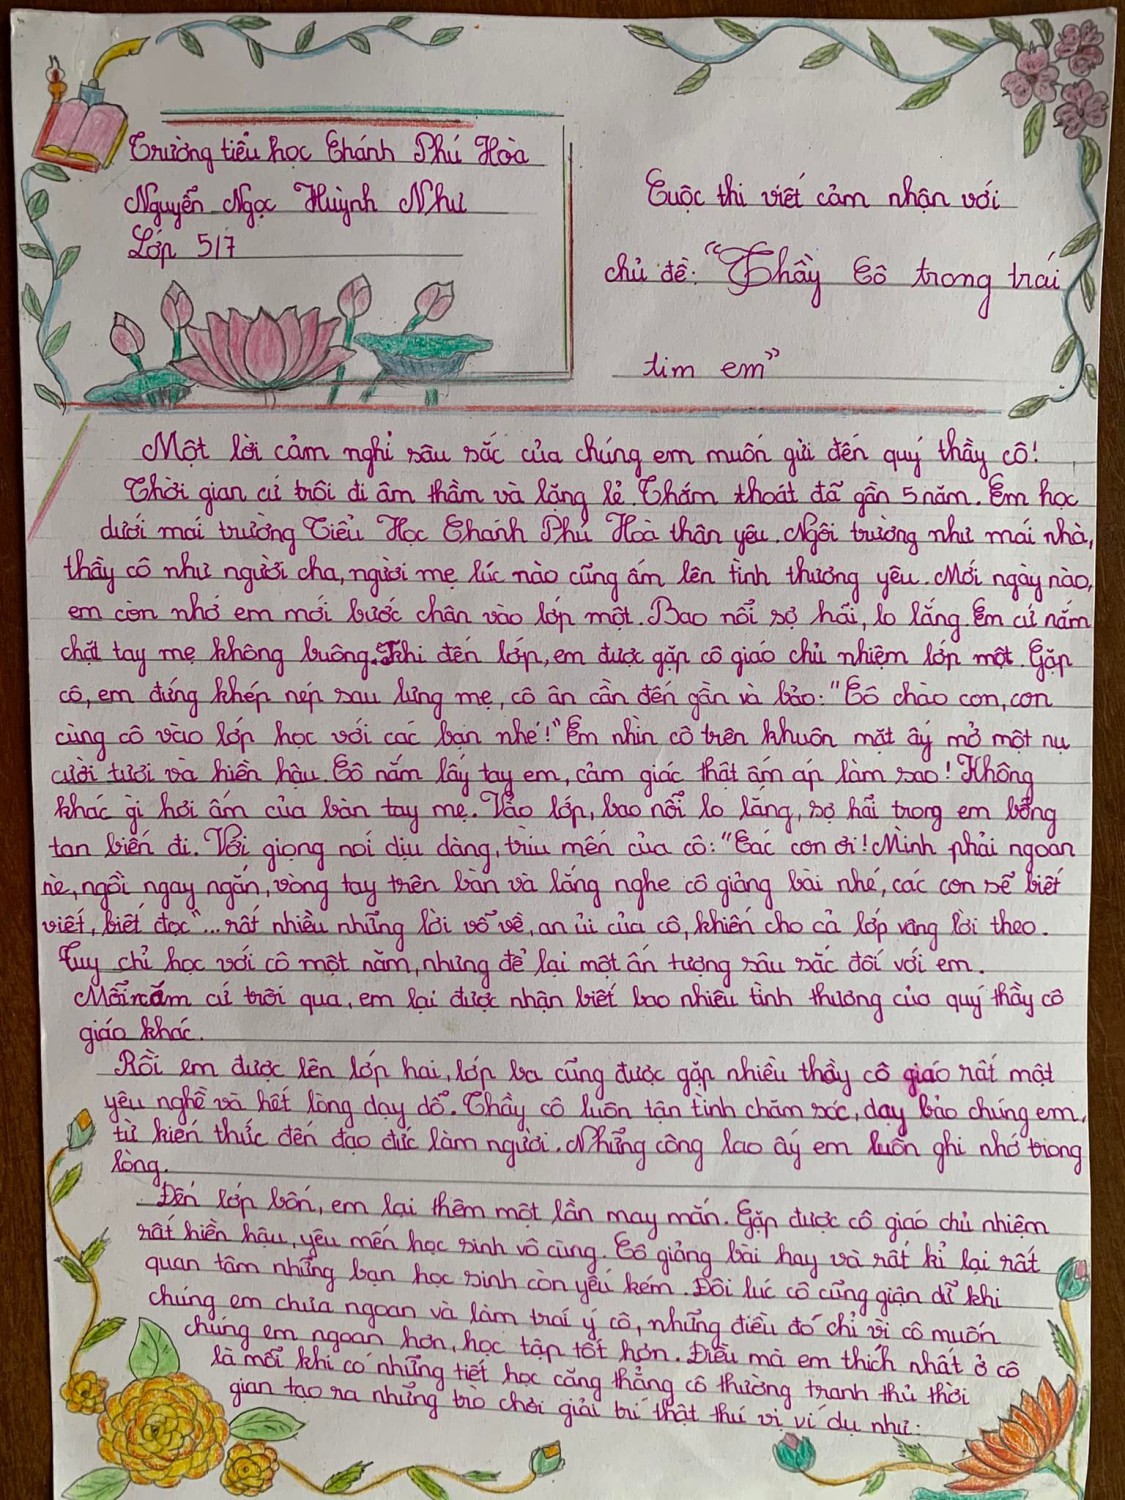 Trường tiểu học Chánh Phú Hoà
Nguyễn Ngọc Huỳnh Như
Lớp 5/7
Cuộc thi viết cảm nhận với
chủ đề: "Thầy Cô trong trái
tim em"
Một lời cảm nghỉ sâu sắc của chúng em muốn gửi đến quý thầy cô!
Thời gian cứ trôi đi âm thầm và lặng lẽ. Thám thoát đã gần 5 năm. Em học
dưới mái trường Tiểu Học Chánh Phú Hoà thân yêu. Ngôi trường như mái nhà,
thầy cô như người cha, người mẹ lúc nào cũng ấm lên tình thương yêu. Mới ngày nào,
em còn nhớ em mới bước chân vào lớp một. Bao nổi sợ hãi, lo lắng. Em cứ nắm
chặt tay mẹ không buông. Khi đến lớp, em được gặp cô giáo chủ nhiệm lớp một. Gặp
cô, em đứng khép nép sau lưng mẹ, cô ân cần đến gần và bảo: "Cô chào con, con
cùng cô vào lớp học với các bạn nhé!" Em nhìn cô trên khuôn mặt ấy mở một nụ
cười tươi và hiền hậu. Cô nắm lấy tay em, cảm giác thật ấm áp làm sao! Không
khác gì hơi ấm của bàn tay mẹ. Vào lớp, bao nổi lo lắng, sợ hãi trong em bỗng
tan biến đi. Với giọng nói dịu dàng, trìu mến của cô: "Các con ơi! Mình phải ngoan
nè, ngồi ngay ngắn, vòng tay trên bàn và lắng nghe cô giảng bài nhé, các con sẽ biết
viết, biết đọc"... rất nhiều những lời vỗ về, an ủi của cô, khiến cho cả lớp vâng lời theo.
Tuy chỉ học với cô một năm, nhưng để lại một ấn tượng sâu sắc đối với em.
Mỗi năm cứ trôi qua, em lại được nhận biết bao nhiêu tình thương của quý thầy cô
giáo khác.
Rồi em được lên lớp hai, lớp ba cũng được gặp nhiều thầy cô giáo rất mật
yêu nghề và hết lòng dạy dỗ. Thầy cô luôn tận tình chăm sóc, dạy bảo chúng em,
từ kiến thức đến đạo đức làm người. Những công lao ấy em luôn ghi nhớ trong
lòng.
Đến lớp bốn, em lại thêm một lần may mắn. Gặp được cô giáo chủ nhiệm
rất hiền hậu, yêu mến học sinh vô cùng. Cô giảng bài hay và rất kỉ lại rất
quan tâm những bạn học sinh còn yếu kém. Đôi lúc cô cũng giận dữ khi
chúng em chưa ngoan và làm trái ý cô, những điều đó chỉ vì cô muốn
chúng em ngoan hơn, học tập tốt hơn. Điều mà em thích nhất ở cô
là mỗi khi có những tiết học căng thẳng cô thường tranh thủ thời
gian tạo ra những trò chơi giải trí thật thú vị ví dụ như: